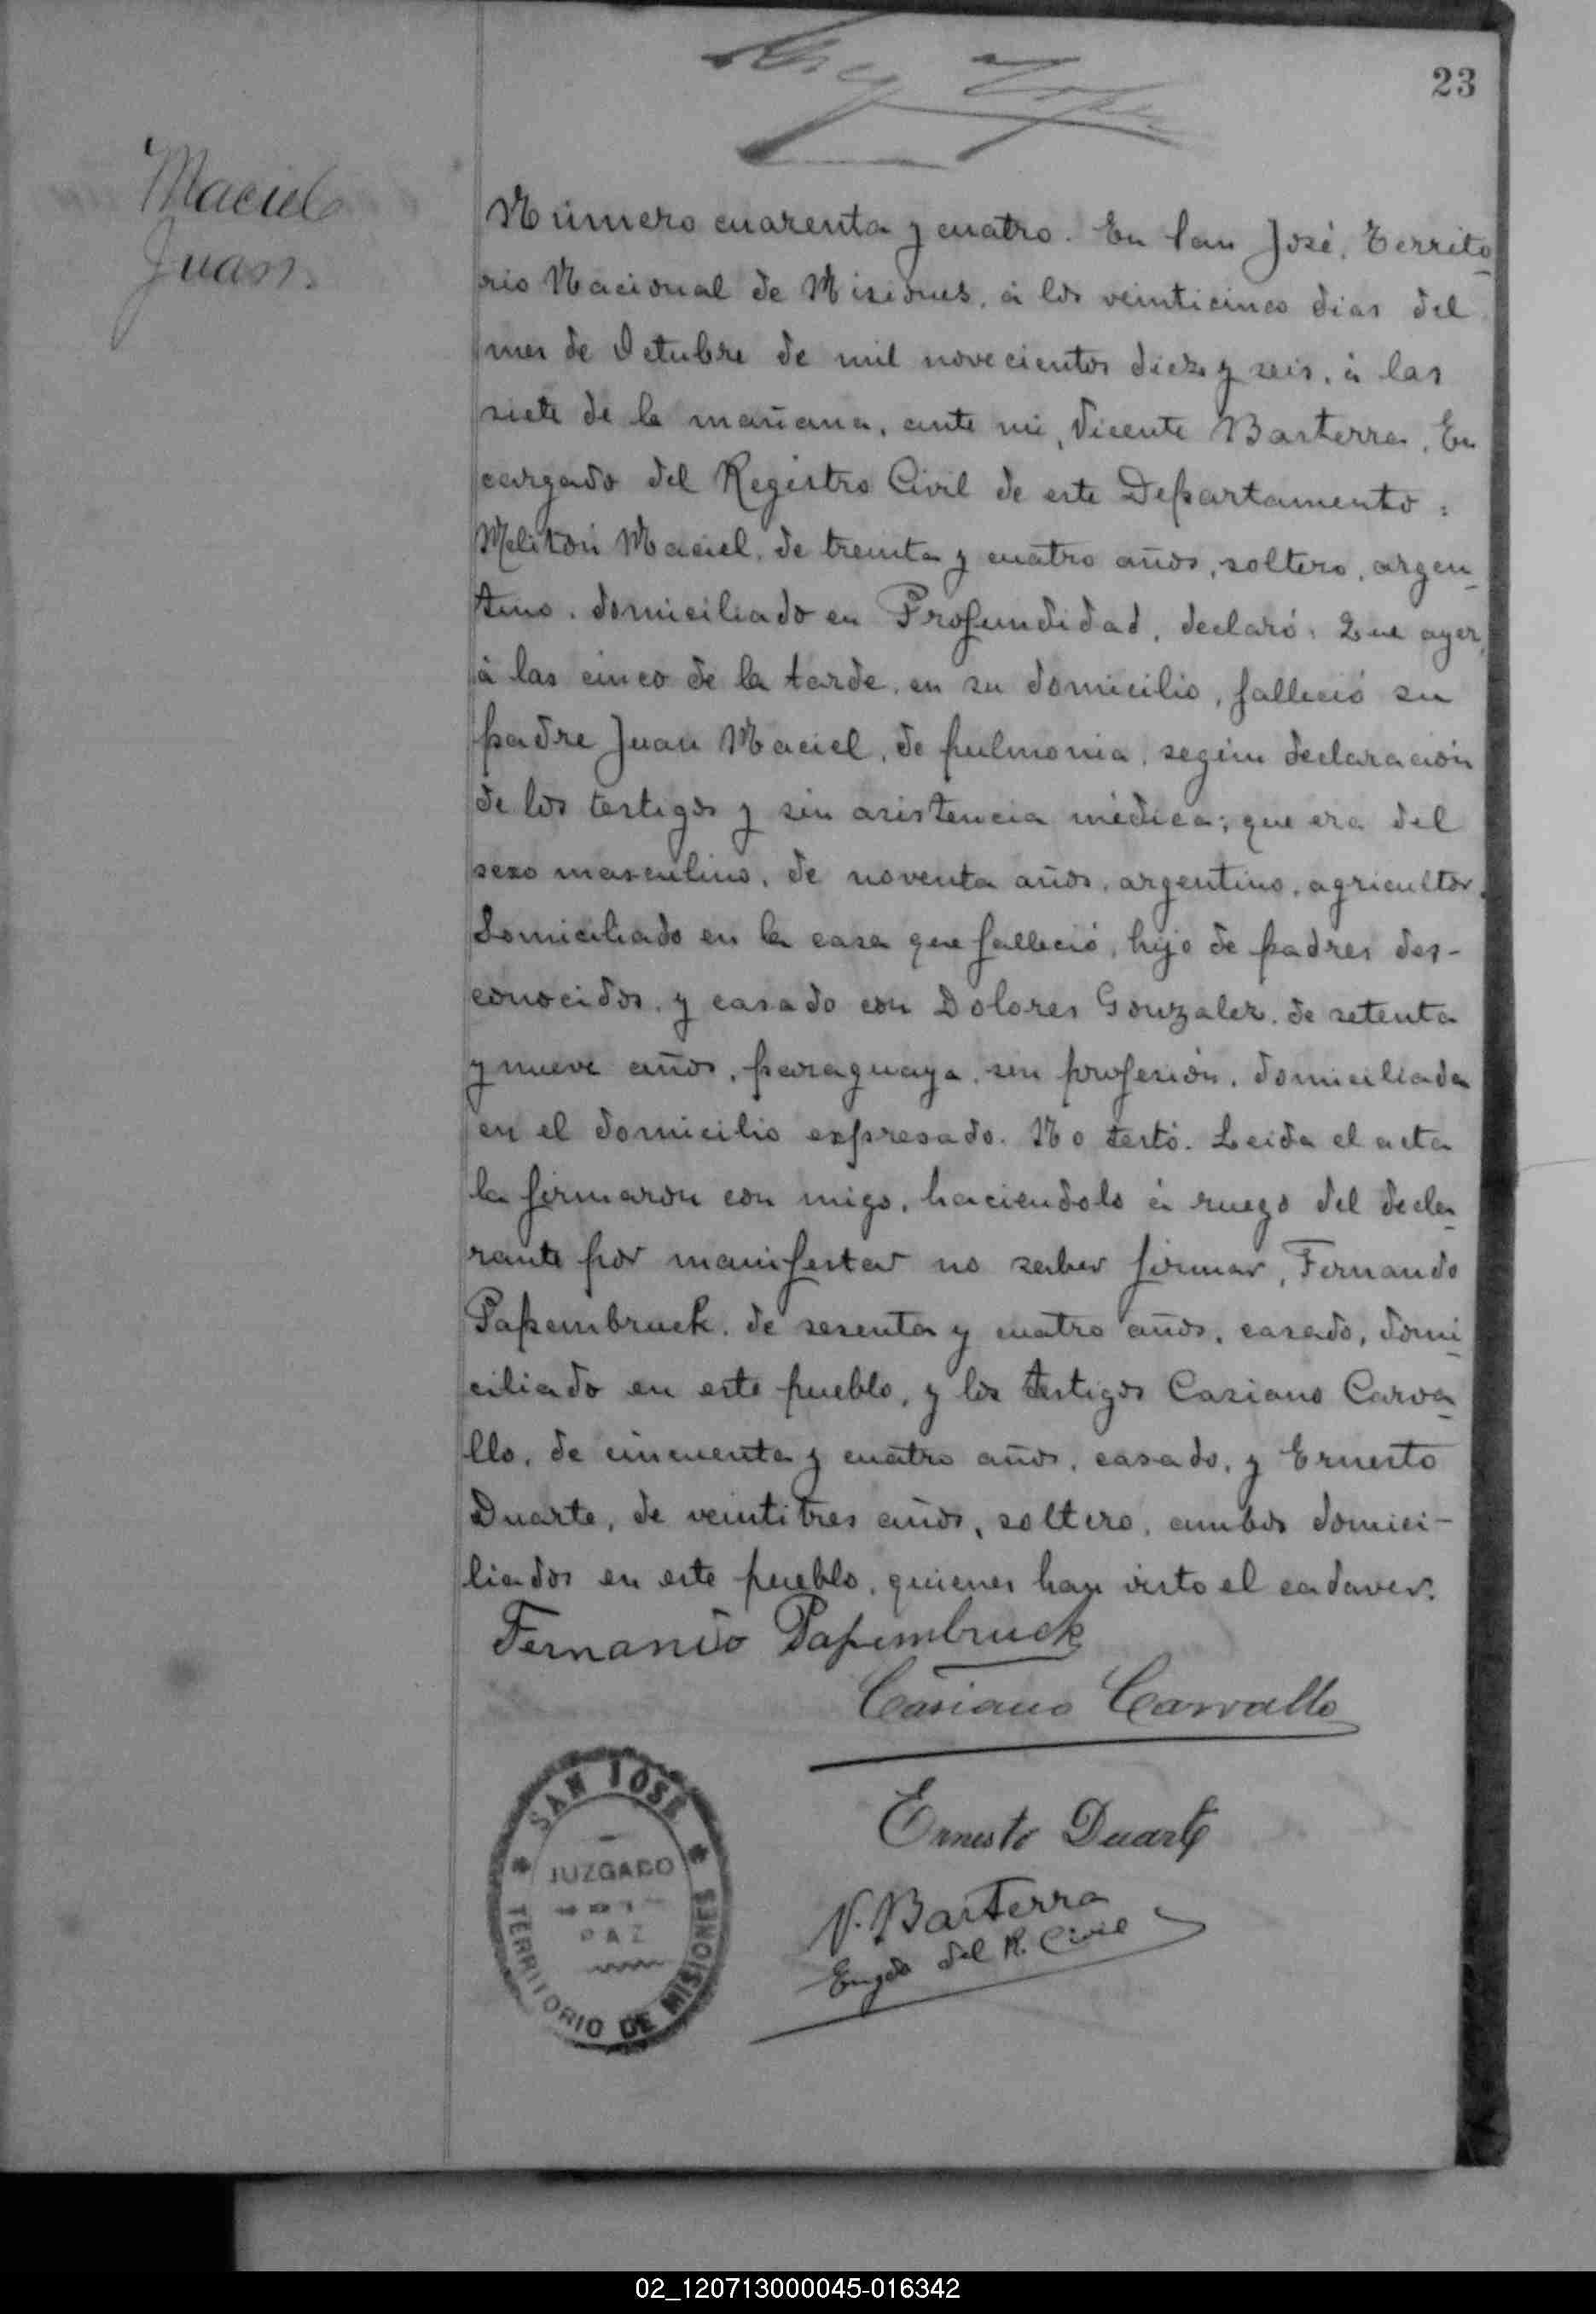 23
Maciel
Juan.
Número cuarenta y cuatro. En San José, Territo-
rio Nacional de Misiones, á los veinticinco dias del
mes de Octubre de mil novecientos diez y seis, á las
siete de la mañana, ante mi, Vicente Basterra, En
cargado del Registro Civil de este Departamento:
Melitón Maciel, de treinta y cuatro años, soltero, argen-
tino, domiciliado en Profundidad, declaró: Que ayer,
á las cinco de la tarde, en su domicilio, falleció su
padre Juan Maciel, de pulmonia, según declaración
de los testigos y sin asistencia médica; que era del
sexo masculino, de noventa años, argentino, agricultor,
domiciliado en la casa que falleció, hijo de padres des-
conocidos, y casado con Dolores Gonzalez, de setenta
y nueve años, paraguaya, sin profesión, domiciliada
en el domicilio expresado. No testó. Leida el acta
la firmaron con migo, haciendolo á ruego del decla-
rante por manifestar no saber firmar, Fernando
Papembruck, de sesenta y cuatro años, casado, domi-
ciliado en este pueblo, y los testigos Casiano Carva-
llo, de cincuenta y cuatro años, casado, y Ernesto
Duarte, de veintitres años, soltero, ambos domici-
liados en este pueblo, quienes han visto el cadaver.
Fernando Papembruck
Casiano Carvallo
Ernesto Duarte
V. Basterra
Engdo del R. Civil
SAN JOSE
JUZGADO
PAZ
TERRITORIO DE MISIONES
02_120713000045-016342